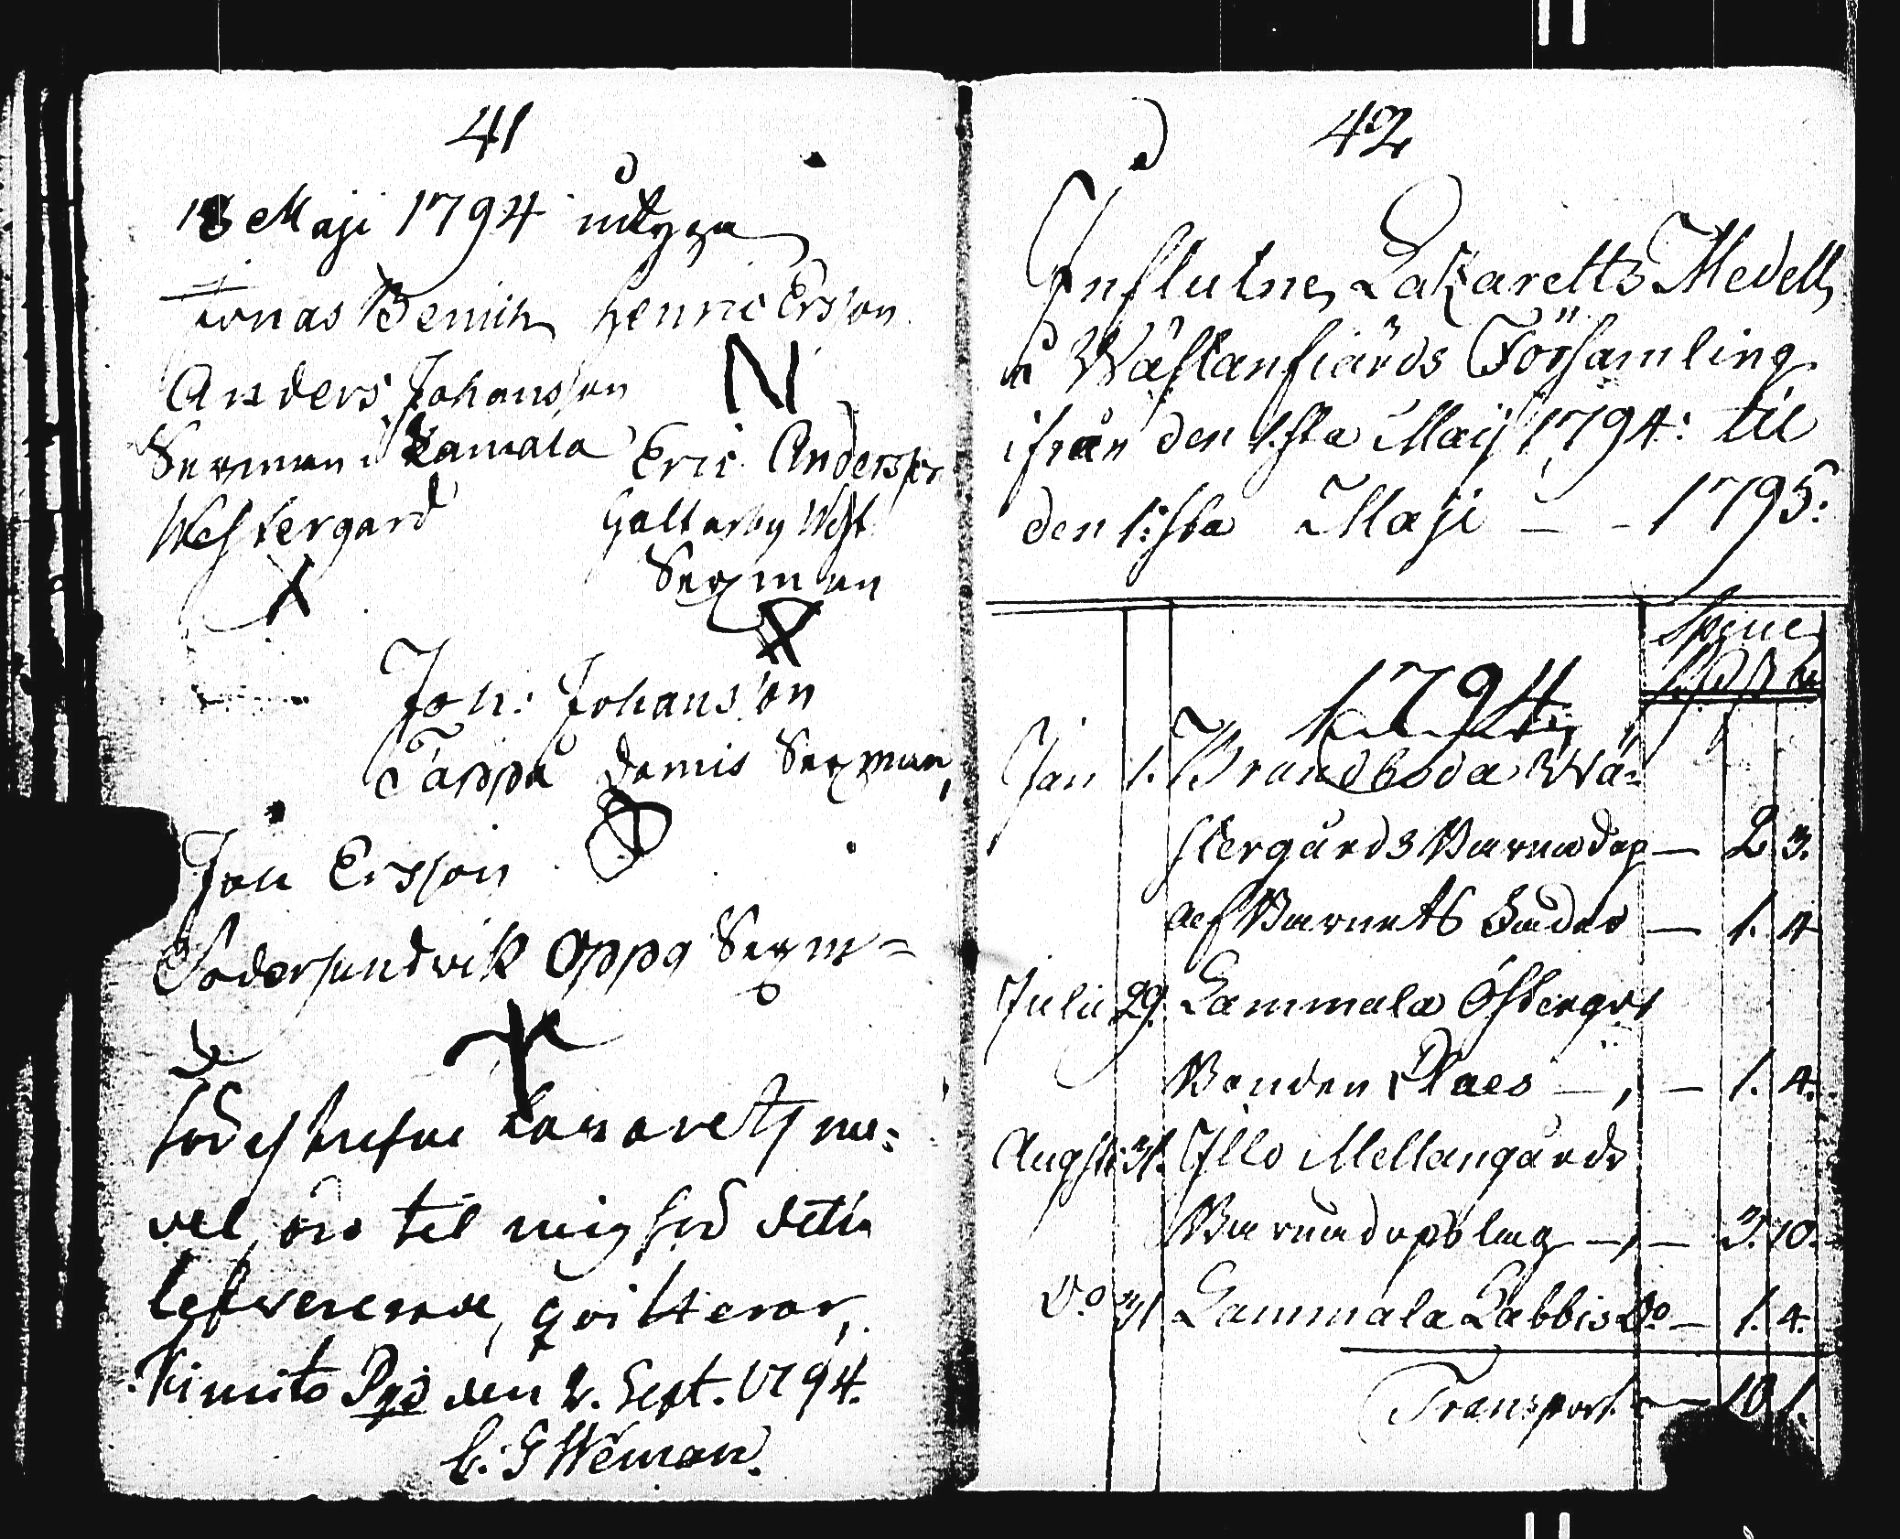 41
18 Maji 1794 intyga
Jonas Benich Henric Ersson
Anders Johansson N
Sexman i Lamala Eric Andersson
Westergård Galtarby West
Sexman
Joh: Johansson
Tappå Domis Sexman
Jon Ersson
Södersundvik Oppg Sexm=
Förestående Lazaretsme=
del äro til mig för detta
lefvererade, qvitterar,
Kimito Pgd den 2. Sept. 1794.
C. G Weman.
42
Influtne Lazaretts Medell
i Wästanfiärds Församling
ifrån den 1:sta Maij 1794: til
den 1:sta Maji — - 1795:
1794
Jan 1. Brandboda Wä=
stergårds Barnedop — 2 3.
af Barnets Fader — 1. 4
Julii 29. Lammala Östergrd
Bonden Claes — , — 1. 4.
Augsti 31. Illo Mellangårds
Barnedopslag — , — 3. 10.
Do 31 Lammala Labbis Do — 1. 4.
Transport — 10 1.